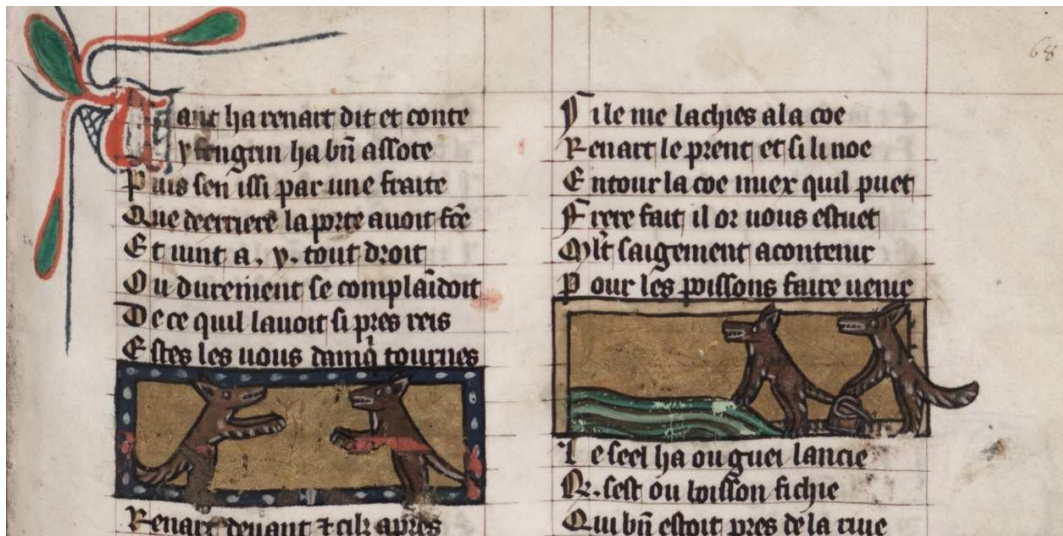 Quant ha renart dit et conte
ysengrin ha bñ assote
Puis sen issi par une fraite
Que deerriere la porte avoit fce
Et uint a. y. tout droit
Ou durement se complaĩdoit
De ce quil lauoit si pres reis
Estes les uous tournes
Renart deuant ⁊ cilz apres
68
Sile me lachies a la coe
Renart le prent et si li noe
Entour la coe miex quil puet
Frere fait il or uous estuet
Mlt saigement a contenir
Pour les poissons faire uenir
Le seel ha ou guei lancie
R. sest ou buisson fichie
Qui bñ estoit pres de la riue